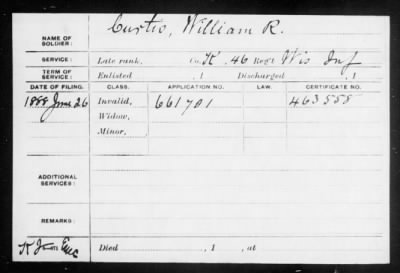 NAME OF SOLDIER: Curtis, William R.
SERVICE: Late rank, Co. K, 46 Reg't Wis Inf
TERM OF SERVICE: Enlisted , 1 Discharged , 1
DATE OF FILING. CLASS. APPLICATION NO. LAW. CERTIFICATE NO.
1888 June 26 Invalid, 661701 463558
Widow,
Minor,
ADDITIONAL SERVICES:
REMARKS:
Died , 1 , at